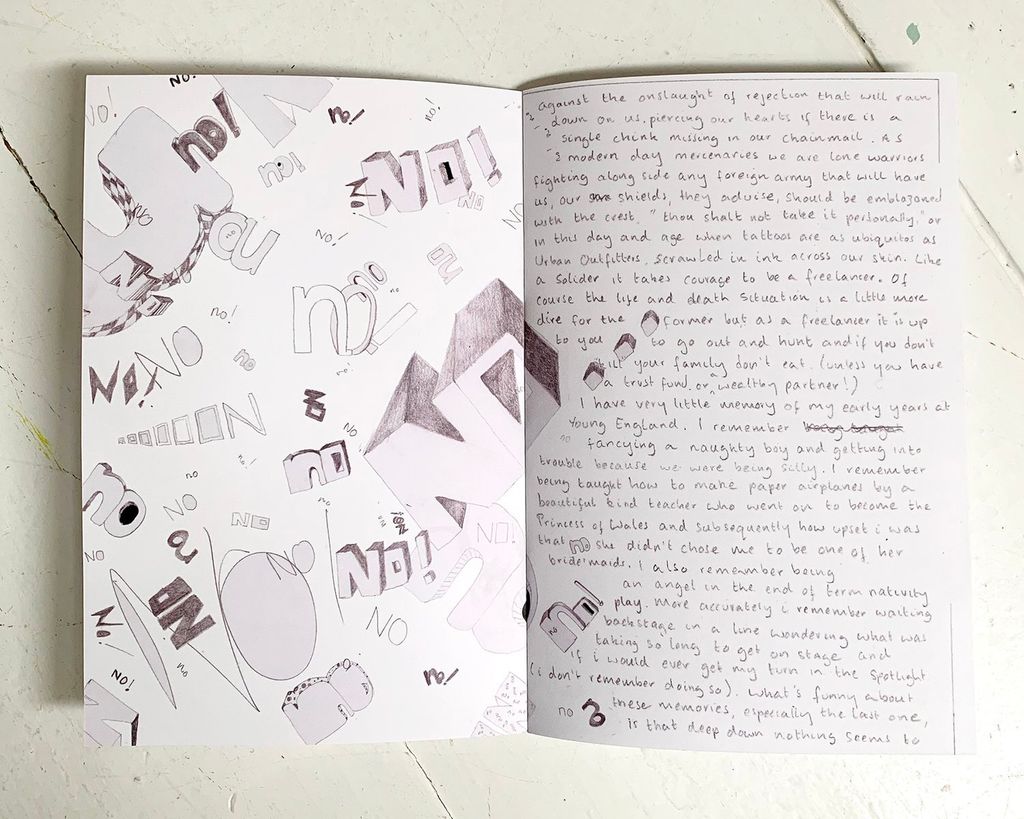 NO!
NO!
no!
no!
no!
no!
NO!
NO
NO
NO
no
no
NO!
no
no
no
no
no!
NO!
NO
no
no
NO
no
NO
no
no
NO
no
NO
NO
no
NO!
NO
NO
no
NO!
NO
no
NO!
no!
against the onslaught of rejection that will rain
down on us, piercing our hearts if there is a
single chink missing in our chainmail. As
modern day mercenaries we are lone warriors
fighting along side any foreign army that will have
us, our shields, they advise, should be emblazoned
with the crest, "thou shalt not take it personally," or
in this day and age when tattoos are as ubiquitos as
Urban Outfitters, scrawled in ink across our skin. Like
a solider it takes courage to be a freelancer. Of
course the life and death situation is a little more
dire for the former but as a freelancer it is up
to you to go out and hunt and if you don't
kill your family don't eat. (unless you have
a trust fund, or wealthy partner!)
I have very little memory of my early years at
Young England. I remember
fancying a naughty boy and getting into
trouble because we were being silly. I remember
being taught how to make paper airplanes by a
beautiful kind teacher who went on to become the
Princess of Wales and subsequently how upset i was
that no she didn't chose me to be one of her
bridesmaids. I also remember being
an angel in the end of term nativity
play. More accurately i remember waiting
backstage in a line wondering what was
taking so long to get on stage and
if i would ever get my turn in the spotlight
(i don't remember doing so). What's funny about
no these memories, especially the last one,
is that deep down nothing seems to